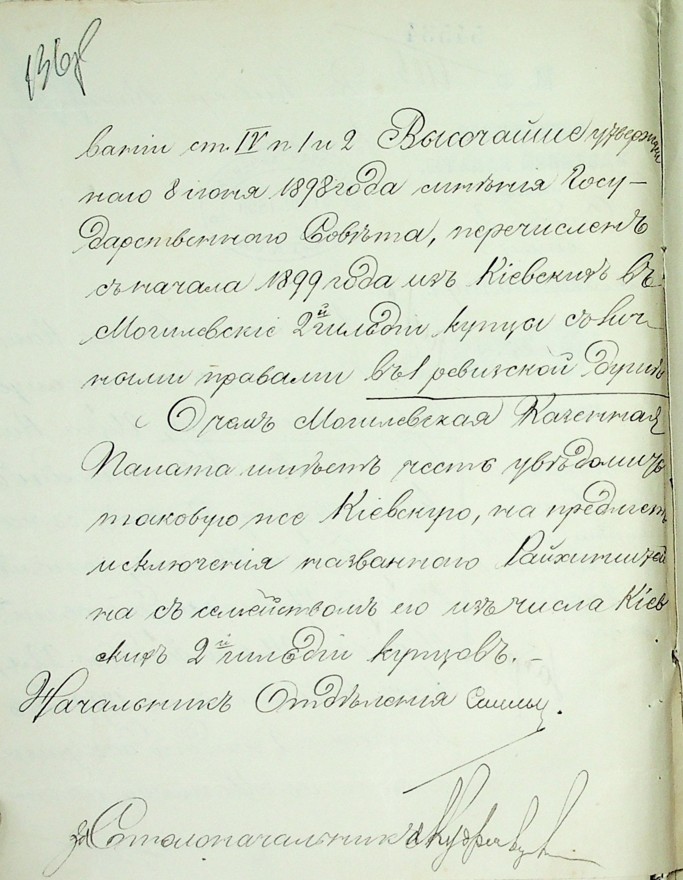 136 об
ваніи ст. IV п. 1 и 2 Высочайше утвержден
наго 8 іюня 1898 года мнѣнія Госу-
дарственнаго Совѣта, перечисленъ
съ начала 1899 года изъ Кіевскихъ въ
Могилевскіе 2й гильдіи купцы съ лич-
ными правами въ 1 ревизской душѣ
О чемъ Могилевская Казенная
Палата имѣетъ честь увѣдомить
таковую же Кіевскую, на предметъ
исключенія названнаго
на съ семействомъ его изъ числа Кіев
скихъ 2й гильдіи купцовъ.-
Начальникъ Отдѣленія
Столоначальникъ